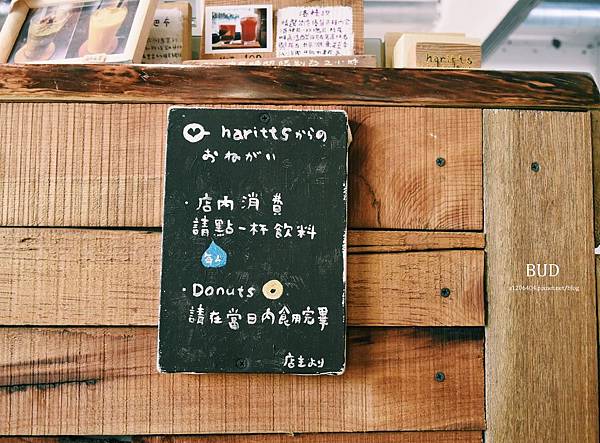 haritts からの
おねがい
・店内消費
請點一杯飲料
每人
・Donuts
請在當日內食用完畢
店主より
haritts
BUD
a1206404.pixnet.net/blog